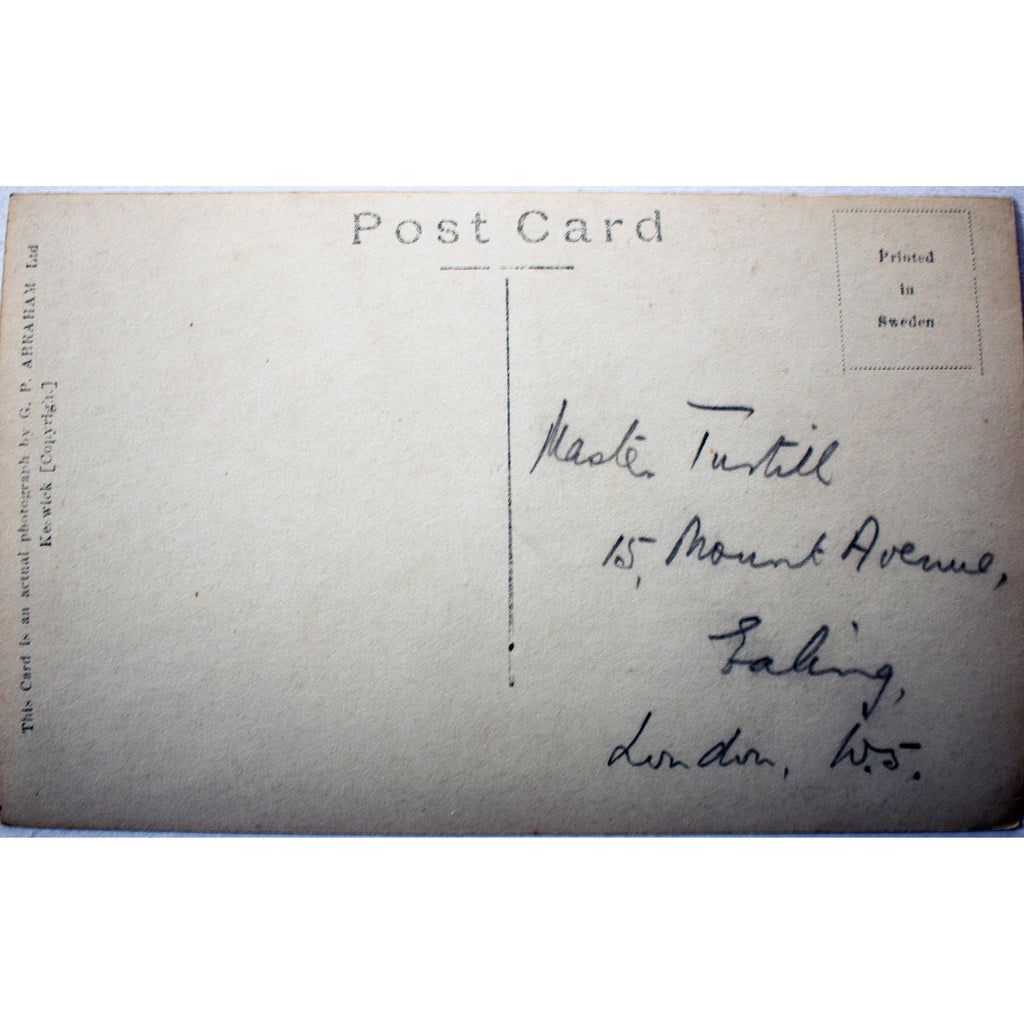 Post Card
Printed
in
Sweden
This Card is an actual photograph by G. P. ABRAHAM Ltd
Keswick [Copyright]
Master
15, Mount Avenue,
Ealing,
London, W.5.